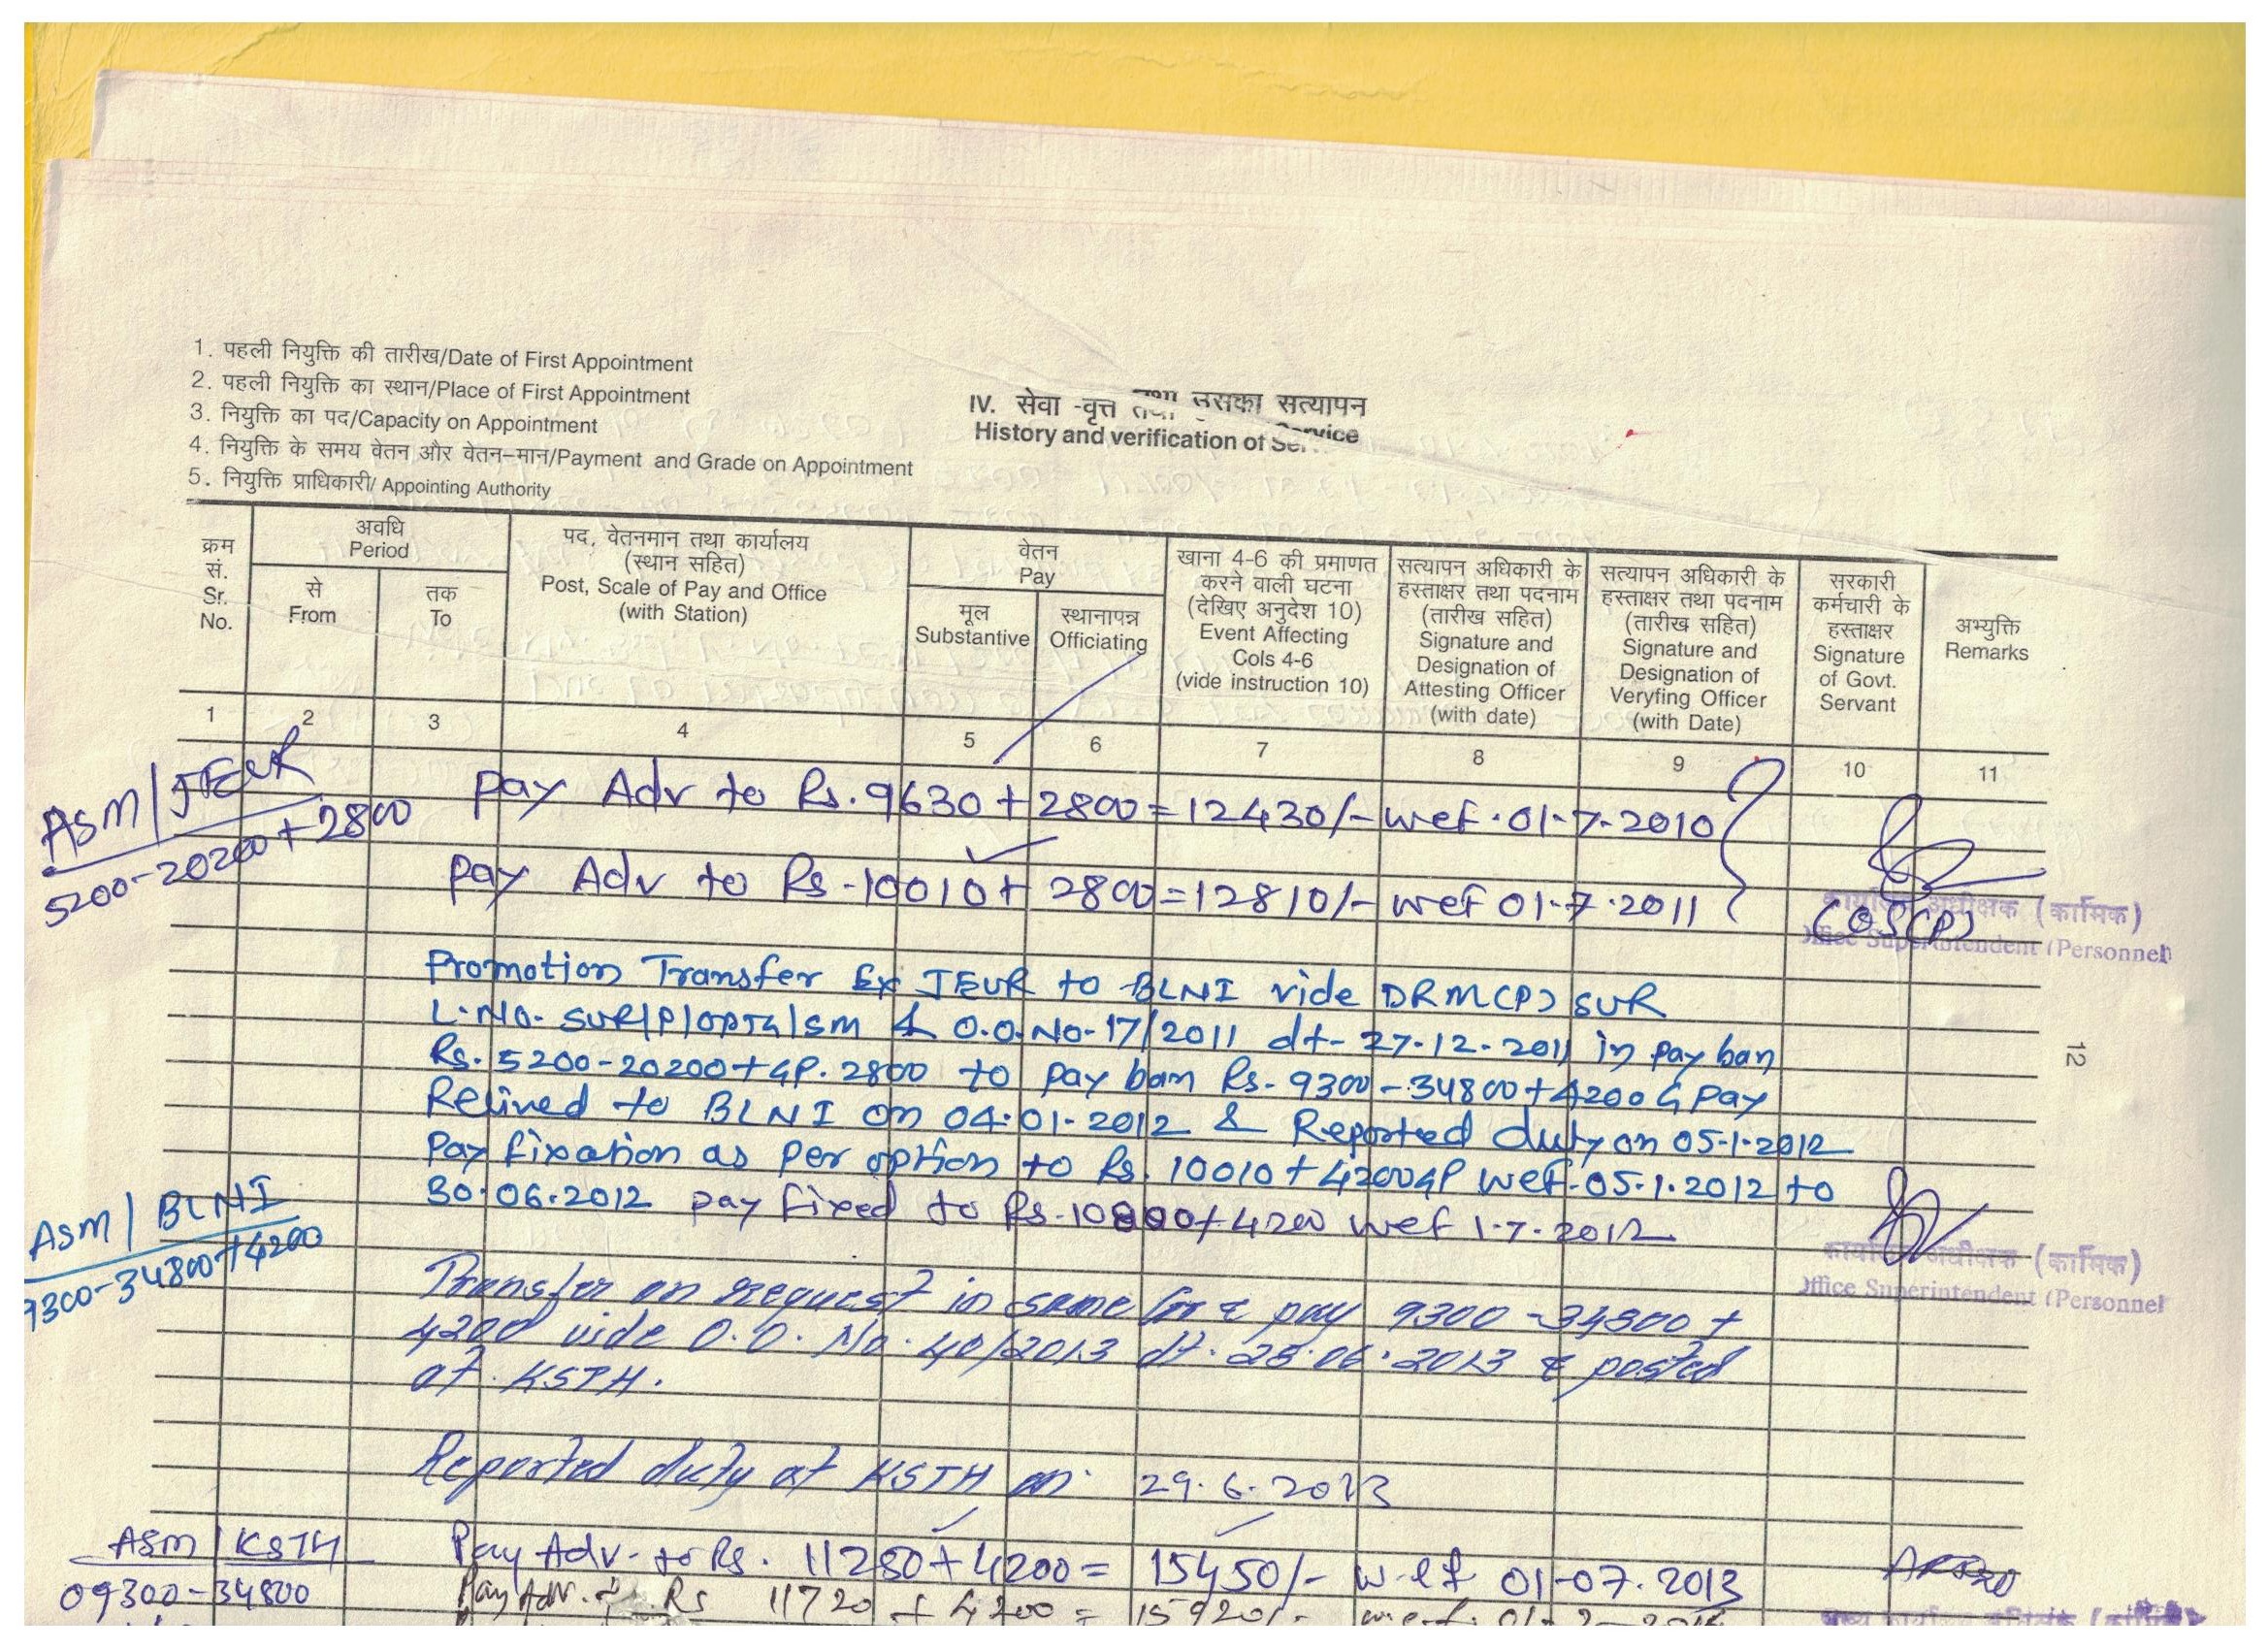 1. पहली नियुक्ति की तारीख/Date of First Appointment
2. पहली नियुक्ति का स्थान/Place of First Appointment
3. नियुक्ति का पद/Capacity on Appointment
4. नियुक्ति के समय वेतन और वेतन-मान/Payment and Grade on Appointment
5. नियुक्ति प्राधिकारी/ Appointing Authority
IV. सेवा -वृत्त तथा उसका सत्यापन
History and verification of Service
क्रम सं. Sr. No.
अवधि Period
से From
तक To
पद, वेतनमान तथा कार्यालय
(स्थान सहित)
Post, Scale of Pay and Office
(with Station)
वेतन Pay
मूल Substantive
स्थानापन्न Officiating
खाना 4-6 की प्रमाणत
करने वाली घटना
(देखिए अनुदेश 10)
Event Affecting
Cols 4-6
(vide instruction 10)
सत्यापन अधिकारी के
हस्ताक्षर तथा पदनाम
(तारीख सहित)
Signature and
Designation of
Attesting Officer
(with date)
सत्यापन अधिकारी के
हस्ताक्षर तथा पदनाम
(तारीख सहित)
Signature and
Designation of
Veryfing Officer
(with Date)
सरकारी
कर्मचारी के
हस्ताक्षर
Signature
of Govt.
Servant
अभ्युक्ति
Remarks
1 2 3 4 5 6 7 8 9 10 11
ASM/JEUR
5200-20200+2800
Pay Adv to Rs. 9630+2800=12430/- wef. 01-7-2010
Pay Adv to Rs-10010+2800=12810/- wef 01-7-2011
COS(P)
कार्यालय अधीक्षक (कार्मिक)
Office Superintendent (Personnel)
Promotion Transfer Ex JEUR to BLNI vide DRM(P) SUR
L.No. SUR/P/OPTG/SM & O.O. No-17/2011 dt- 27-12-2011 in pay ban
Rs. 5200-20200+GP. 2800 to pay ban Rs- 9300-34800+4200 G pay
Relived to BLNI on 04.01-2012 & Reported duty on 05-1-2012
Pay fixation as per option to Rs. 10010+4200GP wef-05-1.2012 to
30.06.2012 pay fixed to Rs. +4200 wef 1-7-2012
ASM/BLNI
9300-34800+4200
कार्यालय अधीक्षक (कार्मिक)
Office Superintendent (Personnel
Transfer on request in same Gr & pay 9300-34800+
4200 vide O.O. No. 40/2013 dt. 28.06.2013 & posted
at KSTH.
Reported duty at KSTH on 29.6.2013
ASM/KSTH
09300-34800
Pay Adv- to Rs. 11250+4200= 15450/- w.e.f 01-07.2013
Pay Adv. Rs 11720+4200=15920/- w.e.f. 01-
12